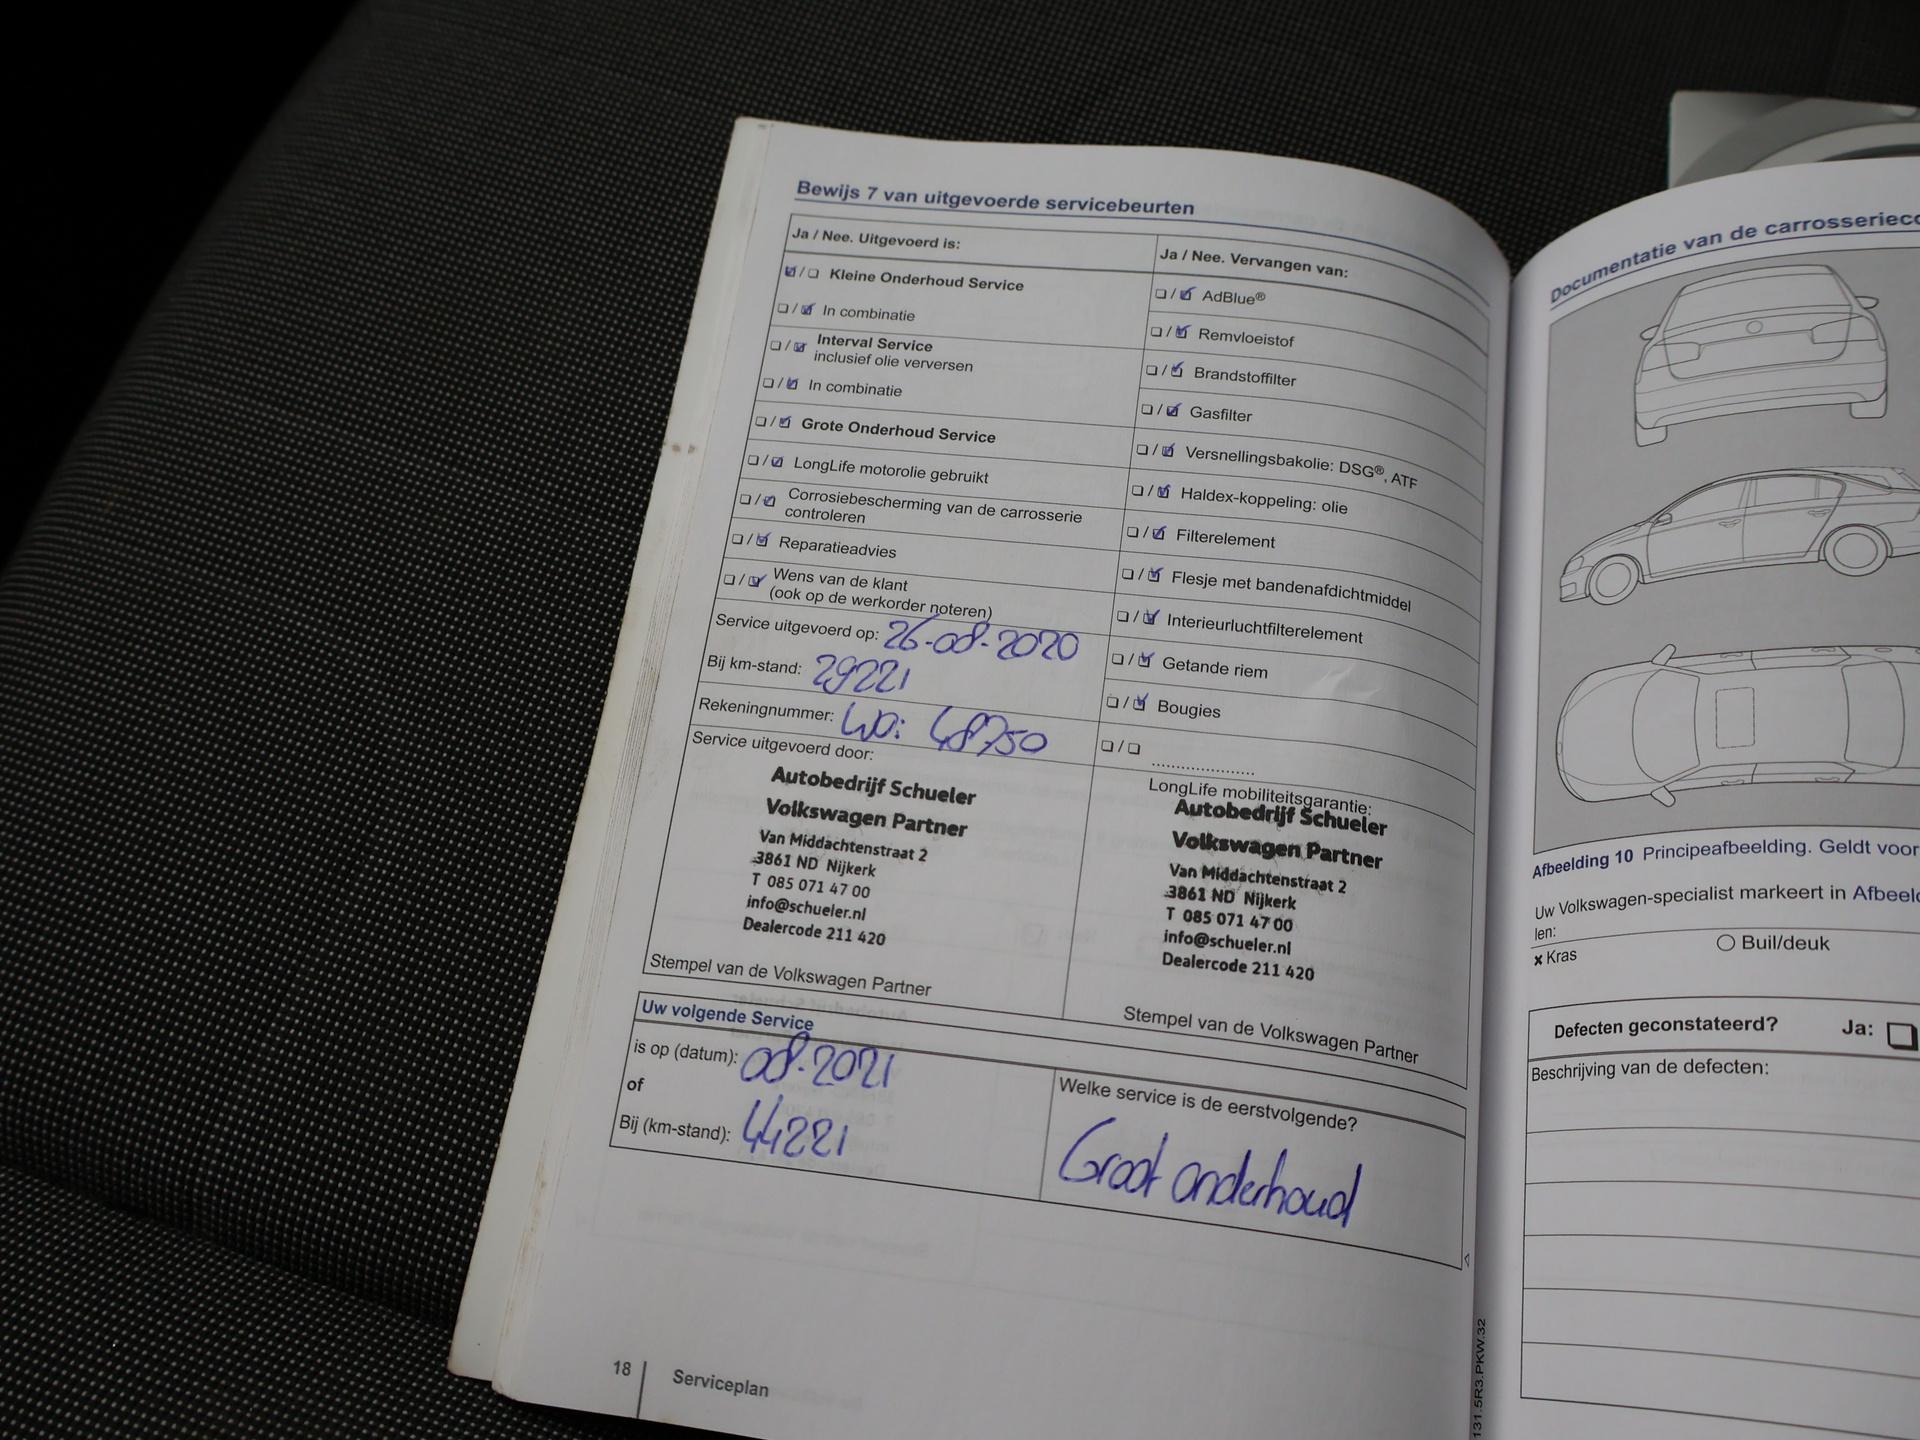 Bewijs 7 van uitgevoerde servicebeurten
Ja / Nee. Uitgevoerd is:
☑/☐ Kleine Onderhoud Service
☐/☑ In combinatie
☐/☑ Interval Service
inclusief olie verversen
☐/☑ In combinatie
☐/☑ Grote Onderhoud Service
☐/☑ LongLife motorolie gebruikt
☐/☑ Corrosiebescherming van de carrosserie
controleren
☐/☑ Reparatieadvies
☐/☑ Wens van de klant
(ook op de werkorder noteren)
Service uitgevoerd op: 26-08-2020
Bij km-stand: 29221
Rekeningnummer: WO: 48750
Service uitgevoerd door:
Autobedrijf Schueler
Volkswagen Partner
Van Middachtenstraat 2
3861 ND Nijkerk
T 085 071 47 00
info@schueler.nl
Dealercode 211 420
Stempel van de Volkswagen Partner
Ja / Nee. Vervangen van:
☐/☑ AdBlue®
☐/☑ Remvloeistof
☐/☑ Brandstoffilter
☐/☑ Gasfilter
☐/☑ Versnellingsbakolie: DSG®, ATF
☐/☑ Haldex-koppeling: olie
☐/☑ Filterelement
☐/☑ Flesje met bandenafdichtmiddel
☐/☑ Interieurluchtfilterelement
☐/☑ Getande riem
☐/☑ Bougies
☐/☐ ....................
LongLife mobiliteitsgarantie:
Autobedrijf Schueler
Volkswagen Partner
Van Middachtenstraat 2
3861 ND Nijkerk
T 085 071 47 00
info@schueler.nl
Dealercode 211 420
Stempel van de Volkswagen Partner
Uw volgende Service
is op (datum): 08-2021
of
Bij (km-stand): 44221
Welke service is de eerstvolgende?
Groot onderhoud
18 Serviceplan
131.5R3.PKW.32
Documentatie van de carrosserieco
Afbeelding 10 Principeafbeelding. Geldt voor
Uw Volkswagen-specialist markeert in Afbeeld
len:
× Kras ○ Buil/deuk
Defecten geconstateerd? Ja: ☐
Beschrijving van de defecten: